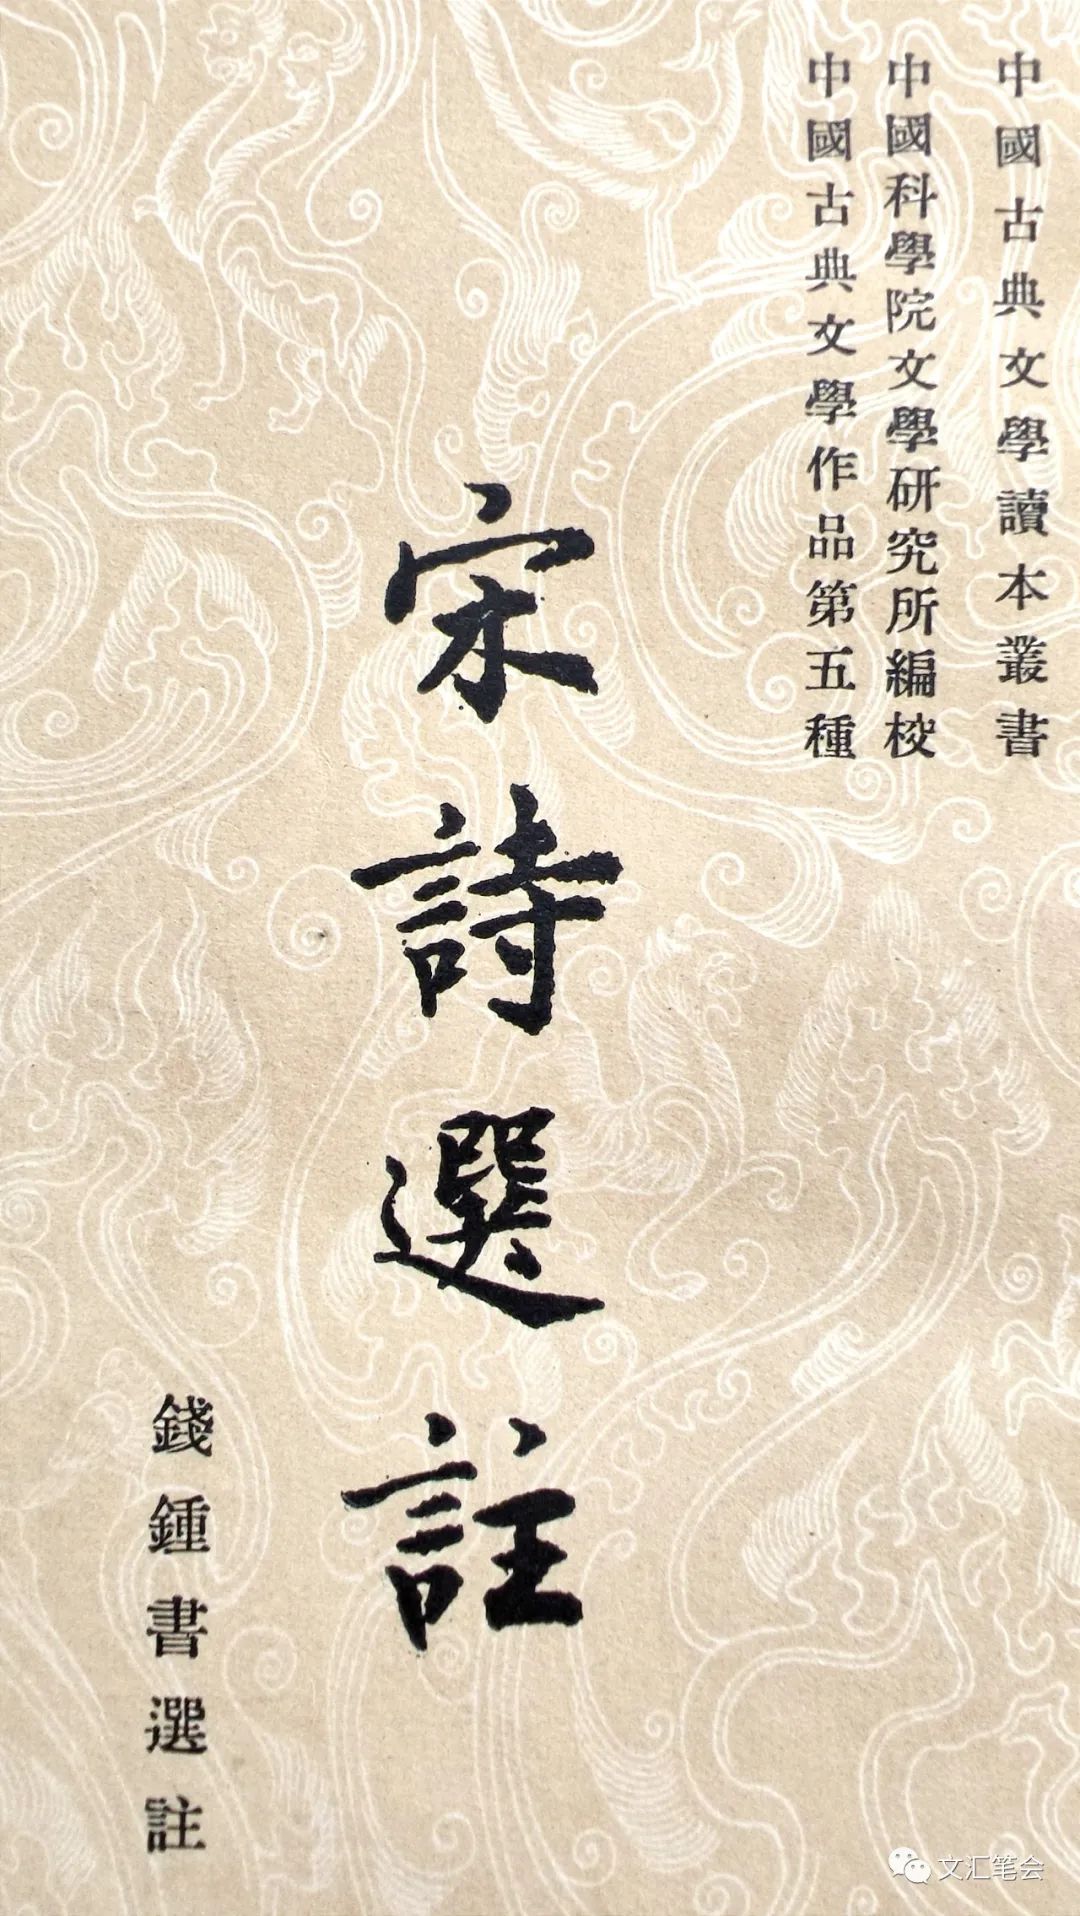 中國古典文學讀本叢書
中國科學院文學研究所編校
中國古典文學作品第五種
宋詩選註
錢鍾書選註
文汇笔会